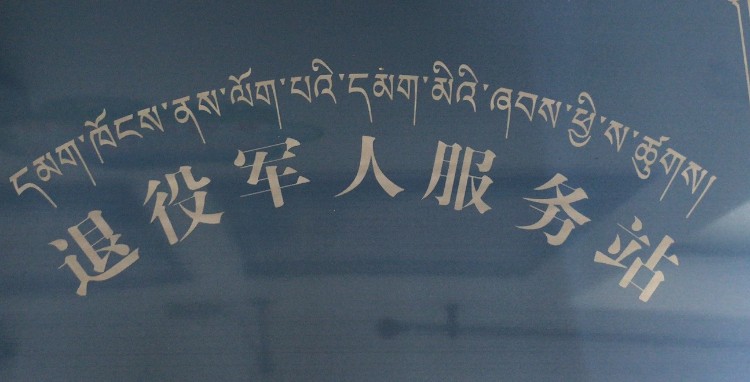 དམག་ཁོངས་ནས་ལོག་པའི་དམག་མིའི་ཞབས་ཕྱི་ས་ཚུགས།
退役军人服务站